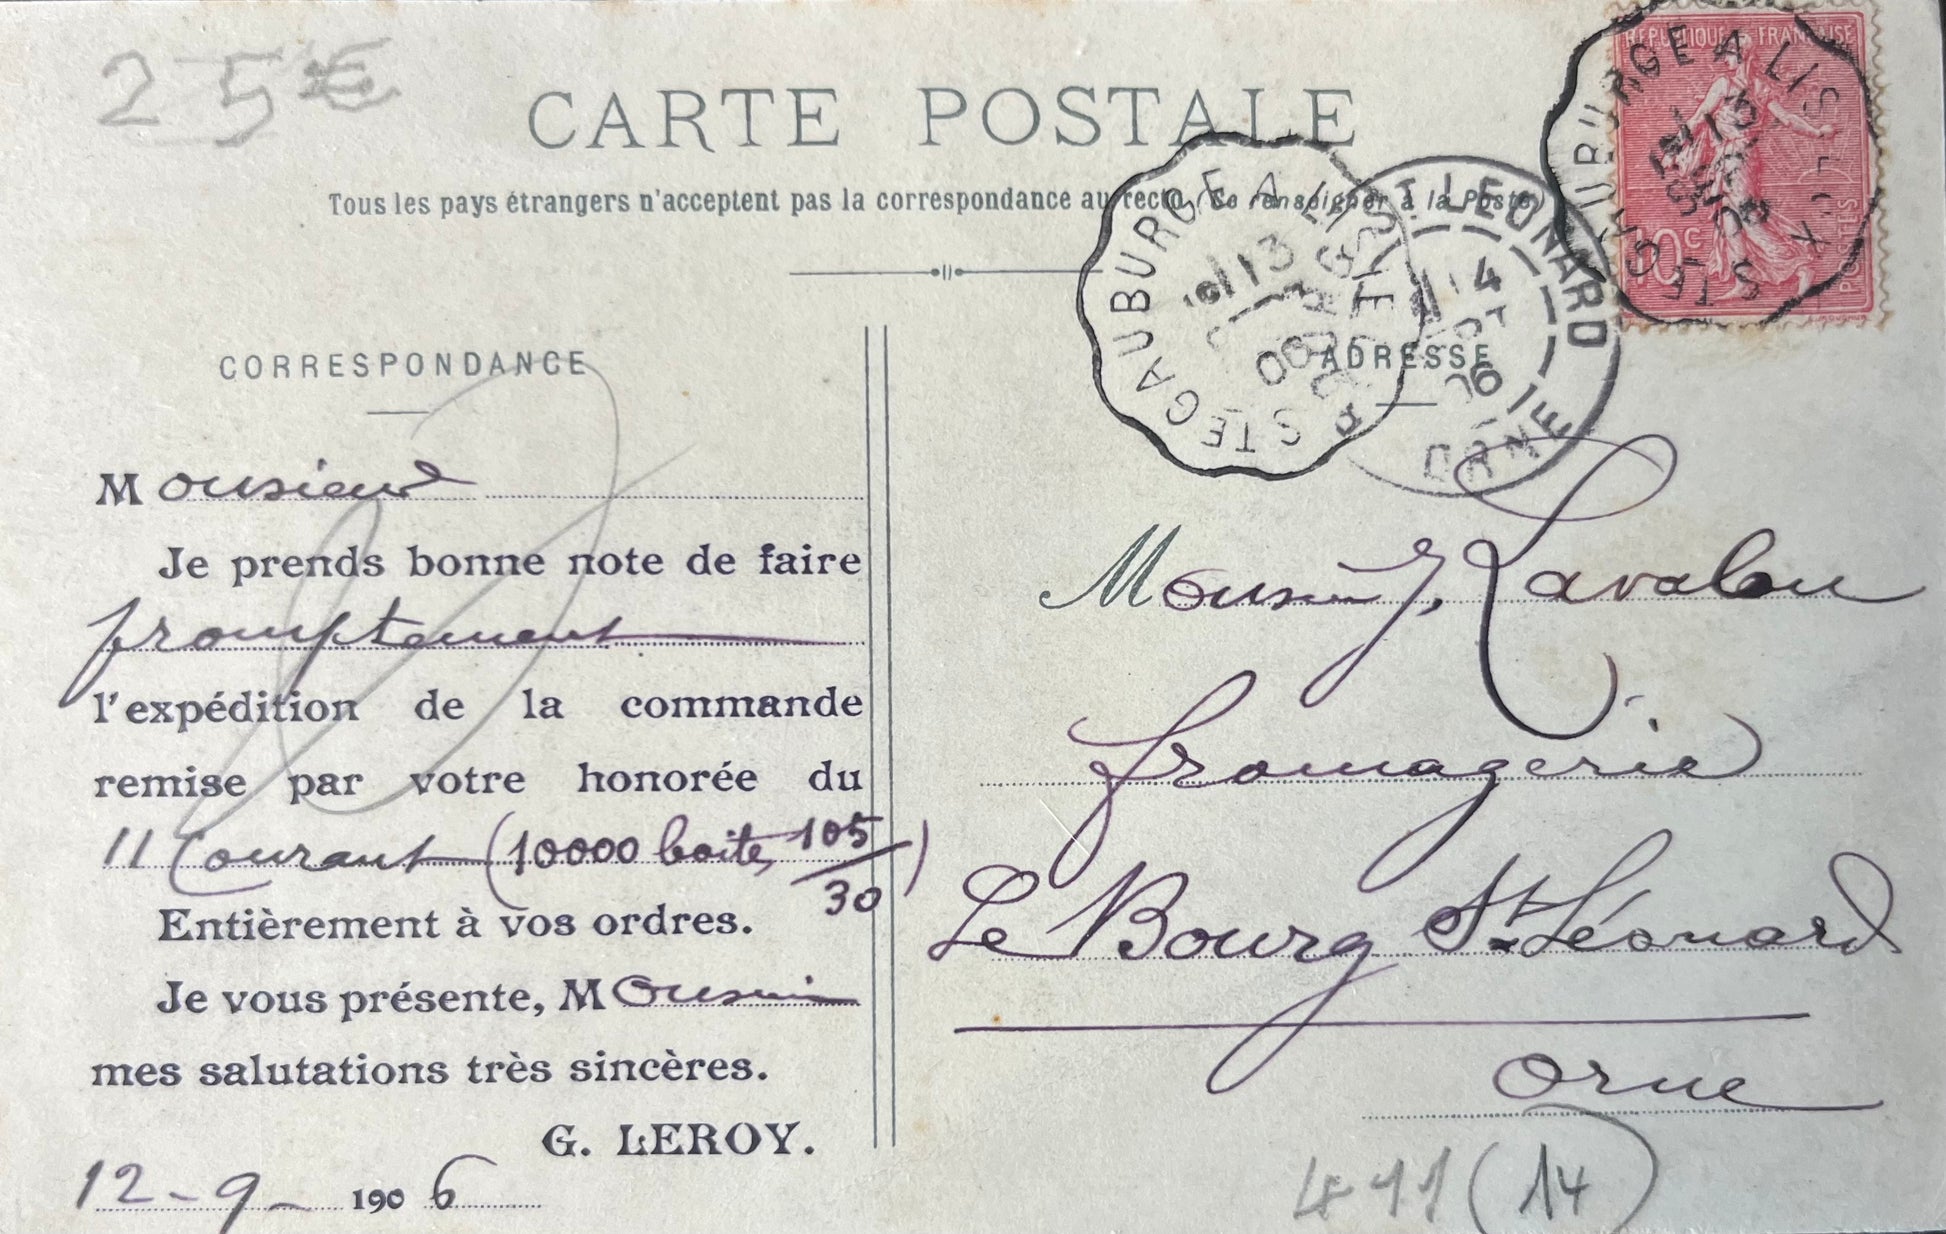 25€
CARTE POSTALE
Tous les pays étrangers n'acceptent pas la correspondance au recto (Se renseigner à la Poste)
REPUBLIQUE FRANÇAISE
10c
POSTES
STE GAUBURGE A LISIEUX
13
06
STE GAUBURGE A LISIEUX
13
LE BOURG ST LEONARD
14
SEPT
06
ORNE
CORRESPONDANCE
ADRESSE
Monsieur
Je prends bonne note de faire
promptement
l'expédition de la commande
remise par votre honorée du
11 Courant (10000 boites 105/30)
Entièrement à vos ordres.
Je vous présente, Monsieur
mes salutations très sincères.
G. LEROY.
12-9- 1906
Monsieur J. Lavalou
fromagerie
Le Bourg St Léonard
Orne
411 (14)